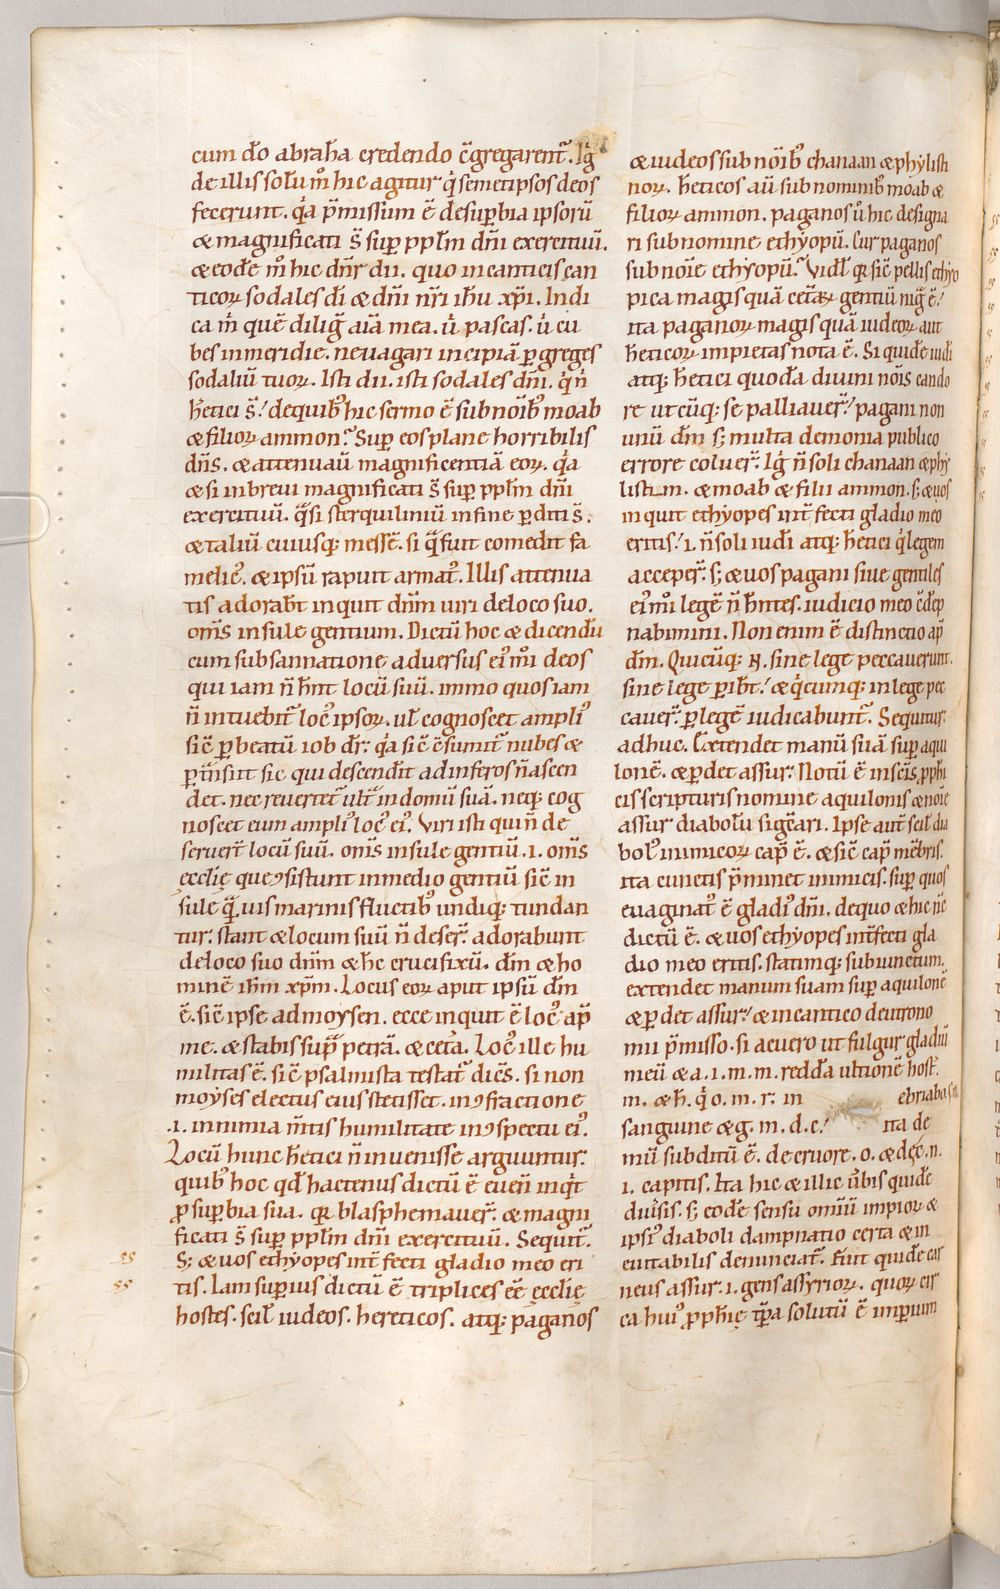 cum do̅ abraha̅ credendo c̅gregarent᷑. Ig̅
de illis solu̅ m̊ hic agitur q̇ semetipsos deos
fecerunt. q̇a p̅missum e̅ de sup̱bia ipsoru̅
& magnificati s̅ sup̱ pp̅l̅m dn̅i exercituu̅.
& eode̅ m̊ hic dn̅r dii. quo in canticis can
ticoꝝ sodales di̅ & dn̅i nr̅i ih̅u xp̅i. Indi
ca m̍ que̅ dilig̅ ai̅a mea. u̍ pascas. u̍ cu
bes in meridie. ne uagari incipia̅ p̱ greges
sodaliu̅ tuoꝝ. Isti dii. isti sodales dn̅i. q̍ n̍
h̅etici s̅! de quibꝰ hic sermo e̅ sub no̅ibꝰ moab
& filioꝝ ammon. Sup̱ eos plane horribilis
dn̅s. & attenuau̅ magnificentia̅ eoꝝ. q̍a
& si in breui magnificati s̅ sup̱ pp̅l̅m dn̅i
exercituu̅. q̅si sterquiliniu̅ in fine p̱diti s̅.
& taliu̅ cuiusq; messe̅. si q̅ fuit comedit fa
melicꝰ. & ipsu̅ rapuit armatꝰ. Illis attenua
tis adorab̅t inquit dn̅m uiri de loco suo.
om̅s insule gentium. Dictu̅ hoc & dicendu̅
cum subsannatione aduersus eiꝰmo̍i deos
qui iam n̅ hn̅t locu̅ suu̅. immo quos iam
n̅ intuebit᷑ locꝰ ipsoꝝ. ul̅ cognoscet ampliꝰ
sic̅ p̱ beatu̅ iob dr̅: q̍a sic̅ c̅sumit᷑ nubes &
p̱tn̅sit sic qui descendit ad inferos n̅ ascen
det. nec reuertet᷑ ult᷑ in domu̅ sua̅. neq; cog
noscet eum ampliꝰ locꝰ eiꝰ. Viri isti qui n̅ de
seruer̅t locu̅ suu̅. om̅s insule gentiu̅. i. om̅s
ęcclię que ꝯsistunt in medio gentiu̅ sic̅ in
sule q̅ uis marinis fluctibꝰ undiq; tundan
tur: stant & locum suu̅ n̅ deser̅. adorabunt
de loco suo dn̅m & hc̅ crucifixu̅. dm̅ & ho
mine̅ ih̅m xp̅m. Locus eoꝝ aput ipsu̅ dm̅
e̅. sic̅ ipse ad moysen. ecce inquit e̅ locꝰ ap̅
me. & stabis sup̅ petra̅. & cet̅a. Locꝰ ille hu
militas e̅. sic̅ psalmista testat᷑ dice̅s. si non
moyses electus eius stetisset. in ꝯfractione
.i. in nimia m̅tis humilitate in ꝯspectu eiꝰ.
Locu̅ hunc h̅etici n̅ inuenisse arguuntur:
quibꝰ hoc qd̅ hactenus dictu̅ e̅ euen̅ inq̍t
ꝓ sup̱bia sua. qꝛ blasphemauer̅. & magni
ficati s̅ sup̱ pp̅l̅m dn̅i exercituu̅. Sequit᷑.
S; & uos ethyopes int̅fecti gladio meo eri
tis. Iam sup̱ius dictu̅ e̅ triplices ee̅ ęcclię
hostes. scil̅ iudeos. hereticos. atq; paganos
& iudeos sub no̅ibꝰ chanaan & phylisti
noꝝ. h̅eticos au̅ sub nominibꝰ moab &
filioꝝ ammon. paganos u̍ hic designa
ri sub nomine ethyopu̅. Cur paganos
sub noi̅e ethyopu̅. Vidl̅ qꝛ sic̅ pellis ethyo
pica magis qua̅ cet̅aꝝ gentiu̅ nig̅ e̅!
ita paganoꝝ magis qua̅ iudeoꝝ aut
h̅eticoꝝ impietas nota e̅. Siquide̅ iudi̅
atq; h̅etici quoda̅ diuini no̅is cando
re utcu̅q; se palliauer̅! pagani non
unu̅ dm̅ s; multa demonia publico
errore coluer̅. Ig̍ n̅ soli chanaan & phy
listim. & moab & filii ammon. s; & uos
inquit ethyopes int̅fecti gladio meo
eritis! i. n̅ soli iudi̅ atq; h̅etici q̍ legem
acceper̅. s; & uos pagani siue gentiles
eiꝰmo̍i lege̅ n̅ hn̅tes. iudicio meo c̅de̅p
nabimini. Non enim e̅ distinctio ap̅
dm̅. Quicu̅q; N. sine lege peccauerunt.
sine lege p̱ib̅t! & q̍cumq; in lege pec
cauer̅. p̱ lege̅ iudicabunt᷑. Sequitur
adhuc. Extendet manu̅ sua̅ sup̱ aqui
lone̅. & p̱det assur. Notu̅ e̅ in sc̅is pph̅i
cis scripturis nomine aquilonis & noi̅e
assur diabolu̅ sige̅ari. Ipse aut̅ scil̅ dia
bolꝰ inimicoꝝ cap̅ e̅. & sic̅ cap̅ me̅bris.
ita cunctis p̅minet inimicis. sup̱ quos
euaginatꝰ e̅ gladiꝰ dn̅i. de quo & hic nc̅
dictu̅ e̅. & uos ethyopes int̅fecti gla
dio meo eritis. statimq; subiunctum.
extendet manum suam sup̱ aquilone̅
& p̱det assur! & in cantico deutrono
mii p̅misso. si acuero ut fulgur gladiu̅
meu̅ & a. i. m. m. redda̅ ultione̅ host̅.
m. & h̅. q̍ o. m. r. in ebriabo. s. m.
sanguine & g. m. d. c.! ita de
mu̅ subditu̅ e̅. de cruore. o. & dec̅. n.
i. capitis. Ita hic & illic u̅bis quide̅
diu̅sis. s; eode̅ sensu omiu̅ impioꝝ &
ipsiꝰ diaboli dampnatio certa & in
euitabilis denunciat᷑. Fuit quide̅ car
neus assur. i. gens assyrioꝝ. quoꝝ cir
ca huiꝰ ꝓph̅ię tp̅a solutu̅ e̅ imp̱ium